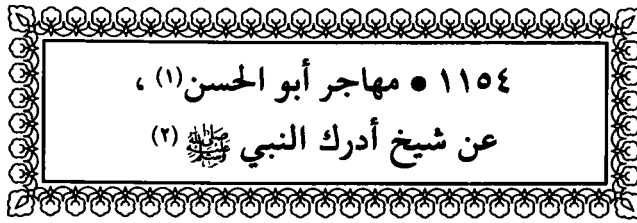 ١١٥٤ ● مهاجر أبو الحسن (١) ،
عن شيخ أدرك النبي ﷺ (٢)